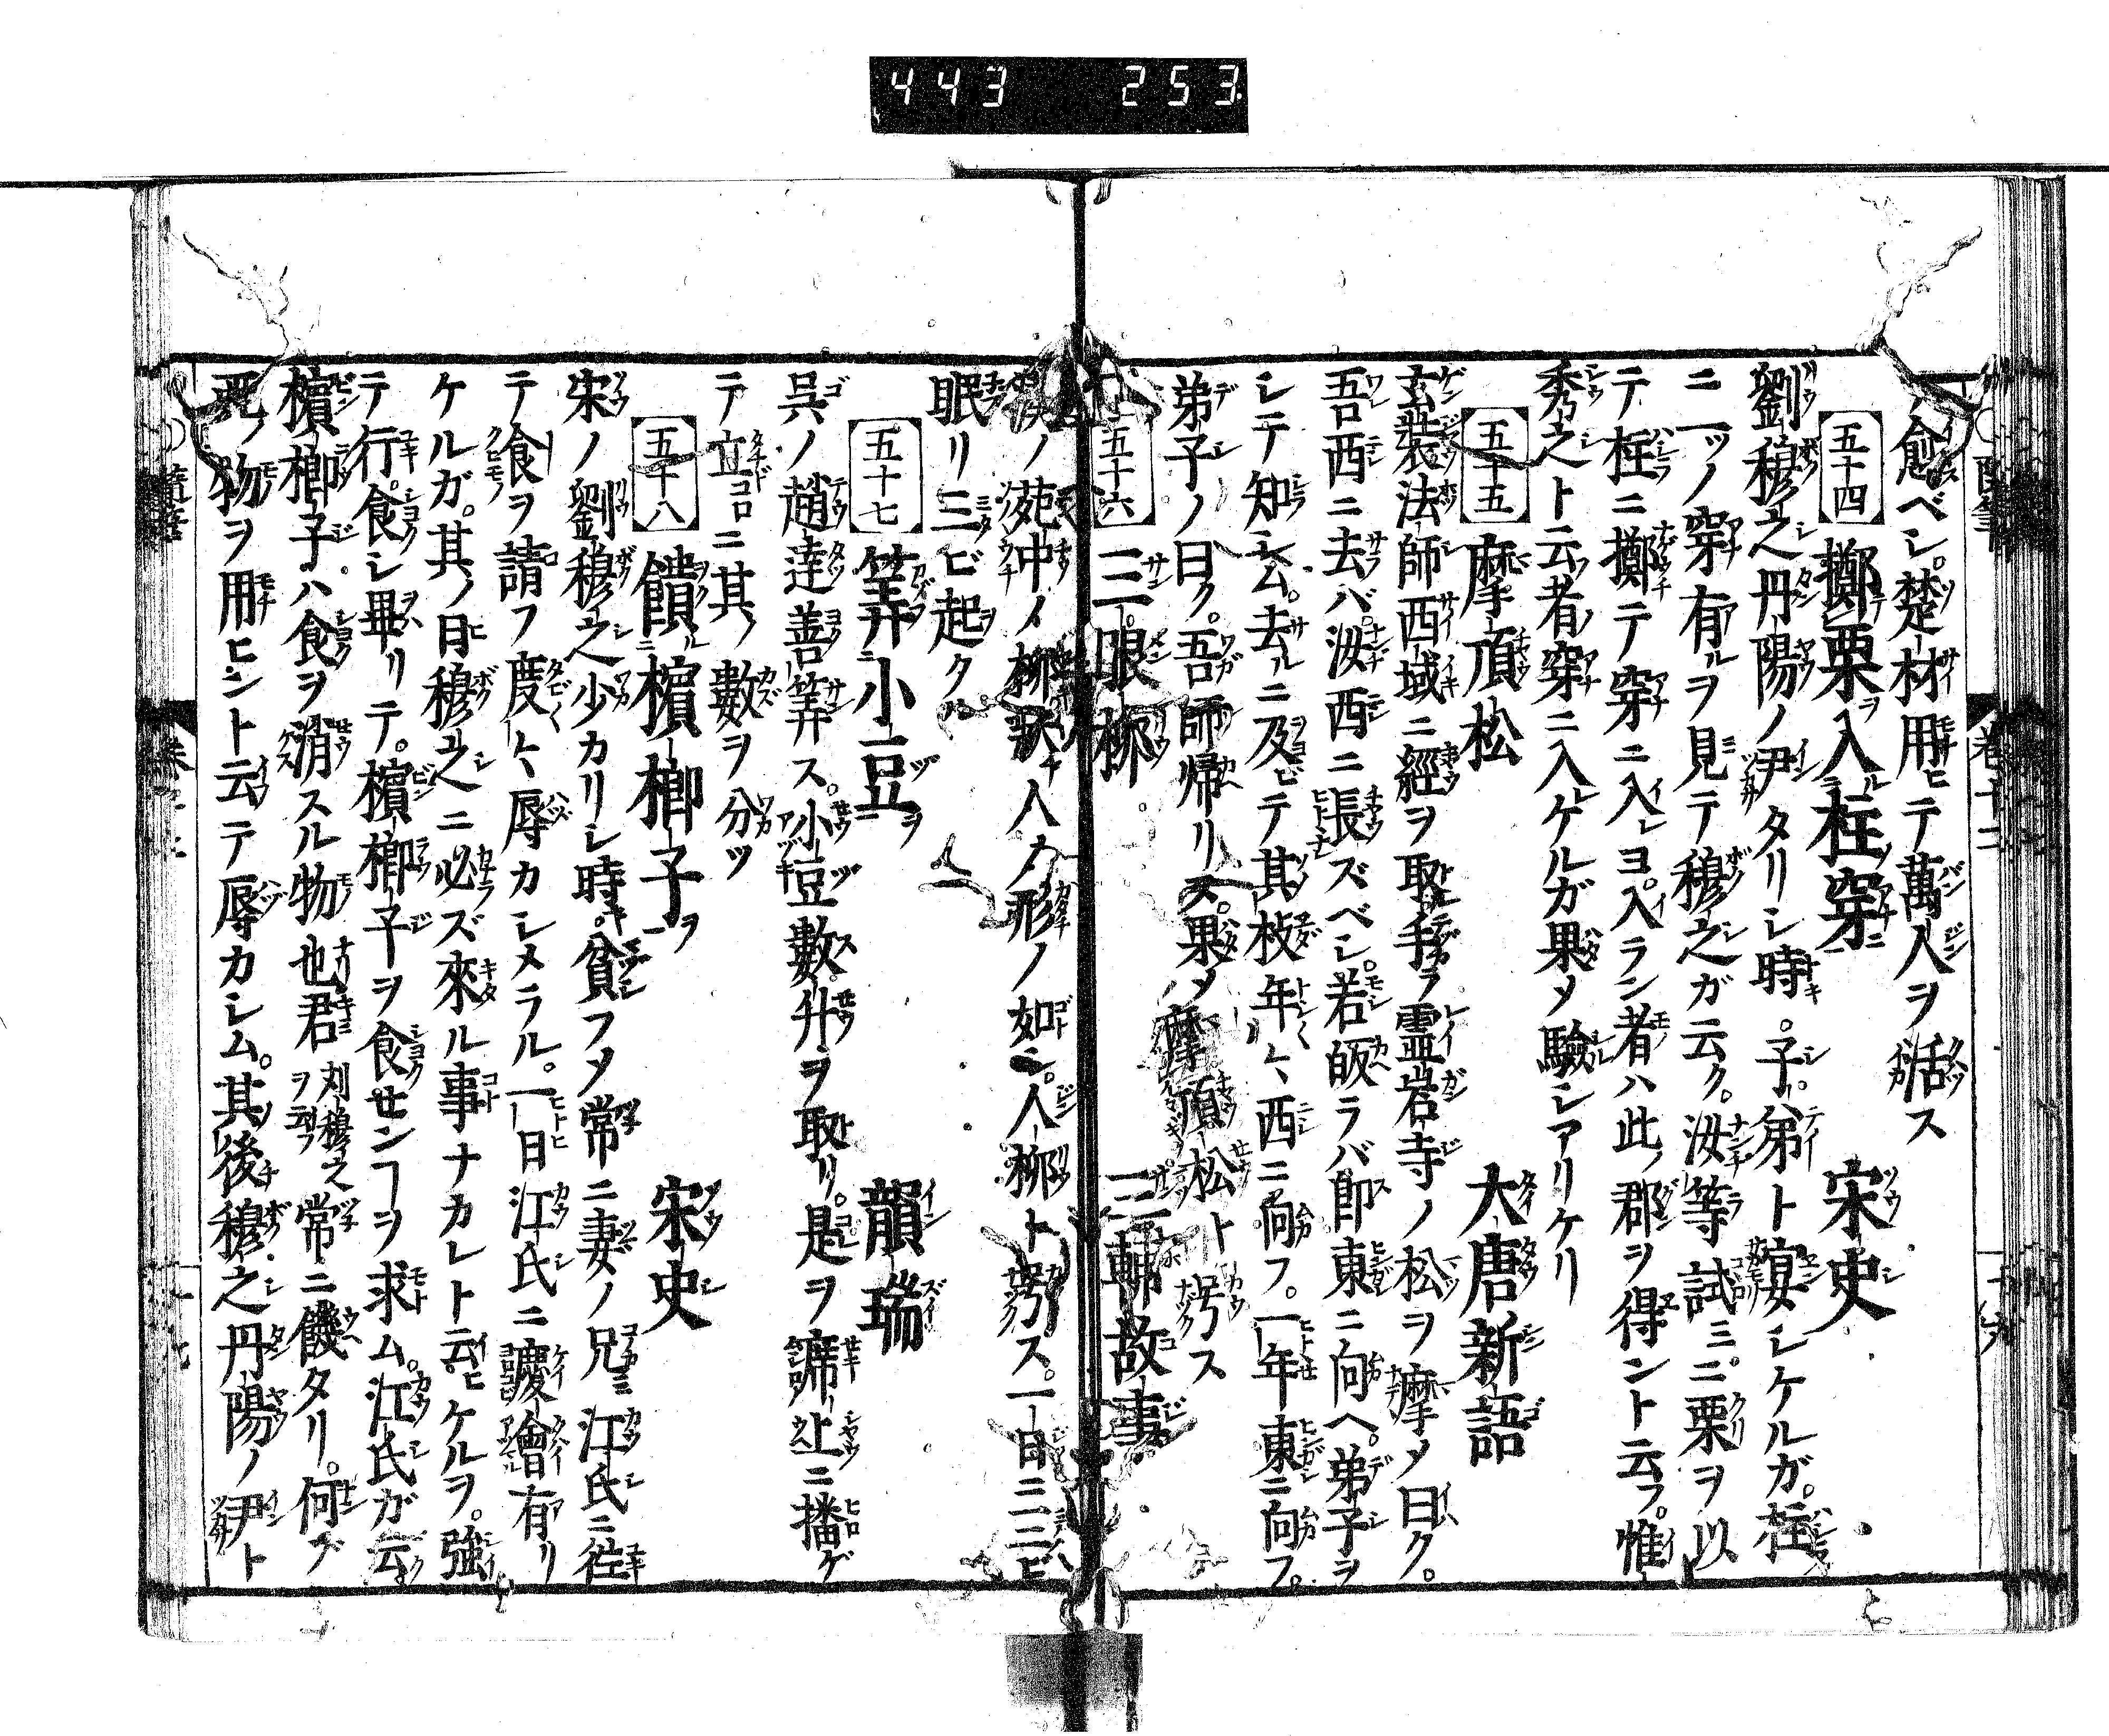 443 253
愈ベシ。楚材用ヒテ萬人ヲ活ス
五十四 擲栗入柱穿 宋史
劉穆之丹陽ノ尹タリシ時。子弟ト宴シケルガ。柱
ニ一ツノ穿有ルヲ見テ穆之ガ云ク。汝等試ミニ栗ヲ以
テ柱ニ擲テ穿ニ入レヨ。入ラン者ハ此ノ郡ヲ得ント云フ。惟
秀之ト云者穿ニ入ケルガ果メ驗シアリケリ
五十五 摩頂松 大唐新語
玄奘法師西域ニ經ヲ取。手ラ霊岩寺ノ松ヲ摩メ曰ク。
吾西ニ去バ。汝西ニ長ズベシ。若皈ラバ即東ニ向ヘ。弟子ヲ
シテ知シム。去ルニ及ビテ其枝年々西ニ向フ。一年東ニ向フ。
弟子ノ曰ク。吾師帰リス。果メ摩頂松ト号ス
五十六 三眠柳 三輔故事
漢ノ苑中ノ柳状チ人ノ形ノ如シ。人柳ト号ス。一日三ビ
眠リ三ビ起ク
五十七 筭小豆 韻瑞
呉ノ趙達善筭ス。小豆數升ヲ取リ。是ヲ席上ニ播ゲ
テ立コロニ其ノ數ヲ分ツ
五十八 饋檳榔子 宋史
宋ノ劉穆之少カリシ時。貧フメ常ニ妻ノ兄江氏ニ徃
テ食ヲ請フ度々辱カシメラル。一日江氏ニ慶會有リ
ケルガ。其ノ日穆之ニ必ズ來ル事ナカレト云ヒケルヲ。強
テ行。食シ畢リテ。檳榔子ヲ食センヿヲ求ム。江氏ガ云ク
檳榔子ハ食ヲ消スル物也君劉穆之ヲ云フ常ニ饑タリ。何ゾ
死ノ物ヲ用ヒント云テ辱カシム。其後穆之丹陽ノ尹ト